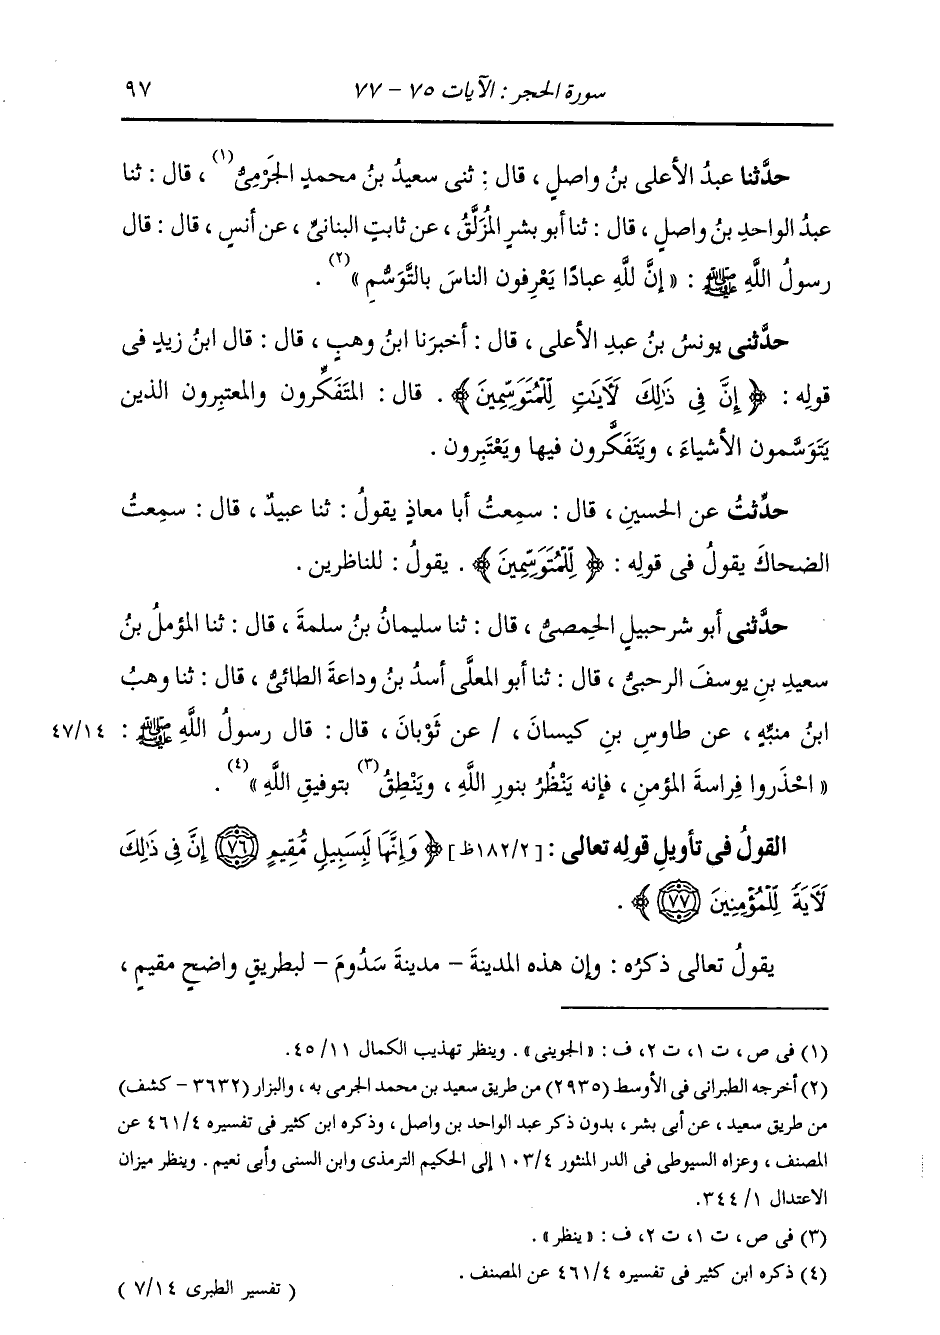 سورة الحجر : الآيات ٧٥ - ٧٧ ٩٧
حدَّثنا عبدُ الأعلى بنُ واصلٍ ، قال : ثنى سعيدُ بنُ محمدٍ الجَرْمِيُّ(١) ، قال : ثنا
عبدُ الواحدِ بنُ واصلٍ ، قال : ثنا أبو بشرٍ المُزَلَّقُ ، عن ثابتٍ البنانيِّ ، عن أنسٍ ، قال : قال
رسولُ اللَّهِ ﷺ : « إنَّ للَّهِ عبادًا يَعْرِفون الناسَ بالتَّوَسُّمِ »(٢) .
حدَّثنى يونسُ بنُ عبدِ الأعلى ، قال : أخبرَنا ابنُ وهبٍ ، قال : قال ابنُ زيدٍ فى
قولِه : ﴿ إِنَّ فِى ذَٰلِكَ لَآيَٰتٍ لِّلْمُتَوَسِّمِينَ ﴾ . قال : المتَفَكِّرون والمعتبِرون الذين
يَتَوَسَّمون الأشياءَ ، ويَتَفَكَّرون فيها ويَعْتَبِرون .
حدِّثتُ عن الحسينِ ، قال : سمِعتُ أبا معاذٍ يقولُ : ثنا عبيدٌ ، قال : سمِعتُ
الضحاكَ يقولُ فى قولِه : ﴿ لِّلْمُتَوَسِّمِينَ ﴾ . يقولُ : للناظرين .
حدَّثنى أبو شرحبيلٍ الحِمصىُّ ، قال : ثنا سليمانُ بنُ سلمةَ ، قال : ثنا المؤملُ بنُ
سعيدِ بنِ يوسفَ الرحبىُّ ، قال : ثنا أبو المعلَّى أسدُ بنُ وداعةَ الطائىُّ ، قال : ثنا وهبُ
ابنُ منبِّهٍ ، عن طاوسِ بنِ كيسانَ ، / عن ثَوْبانَ ، قال : قال رسولُ اللَّهِ ﷺ : ٤٧/١٤
« احْذَروا فِراسةَ المؤمنِ ، فإنه يَنْظُرُ بنورِ اللَّهِ ، ويَنْطِقُ(٣) بتوفيقِ اللَّهِ »(٤) .
القولُ فى تأويلِ قولِه تعالى : [٢/ ١٨٢ظ] ﴿ وَإِنَّهَا لَبِسَبِيلٍ مُّقِيمٍ ﴿٧٦﴾ إِنَّ فِى ذَٰلِكَ
لَآيَةً لِّلْمُؤْمِنِينَ ﴿٧٧﴾ ﴾ .
يقولُ تعالى ذكرُه : وإن هذه المدينةَ - مدينةَ سَدُومَ - لبطريقٍ واضحٍ مقيمٍ ،
(١) فى ص ، ت ١، ت ٢، ف : «الجوينى» . وينظر تهذيب الكمال ١١/ ٤٥.
(٢) أخرجه الطبرانى فى الأوسط (٢٩٣٥) من طريق سعيد بن محمد الجرمى به ، والبزار (٣٦٣٢ - كشف)
من طريق سعيد ، عن أبى بشر ، بدون ذكر عبد الواحد بن واصل ، وذكره ابن كثير فى تفسيره ٤٦١/٤ عن
المصنف ، وعزاه السيوطى فى الدر المنثور ١٠٣/٤ إلى الحكيم الترمذى وابن السنى وأبى نعيم . وينظر ميزان
الاعتدال ١/ ٣٤٤.
(٣) فى ص ، ت ١، ت ٢، ف : «ينظر» .
(٤) ذكره ابن كثير فى تفسيره ٤٦١/٤ عن المصنف .
( تفسير الطبرى ٧/١٤ )